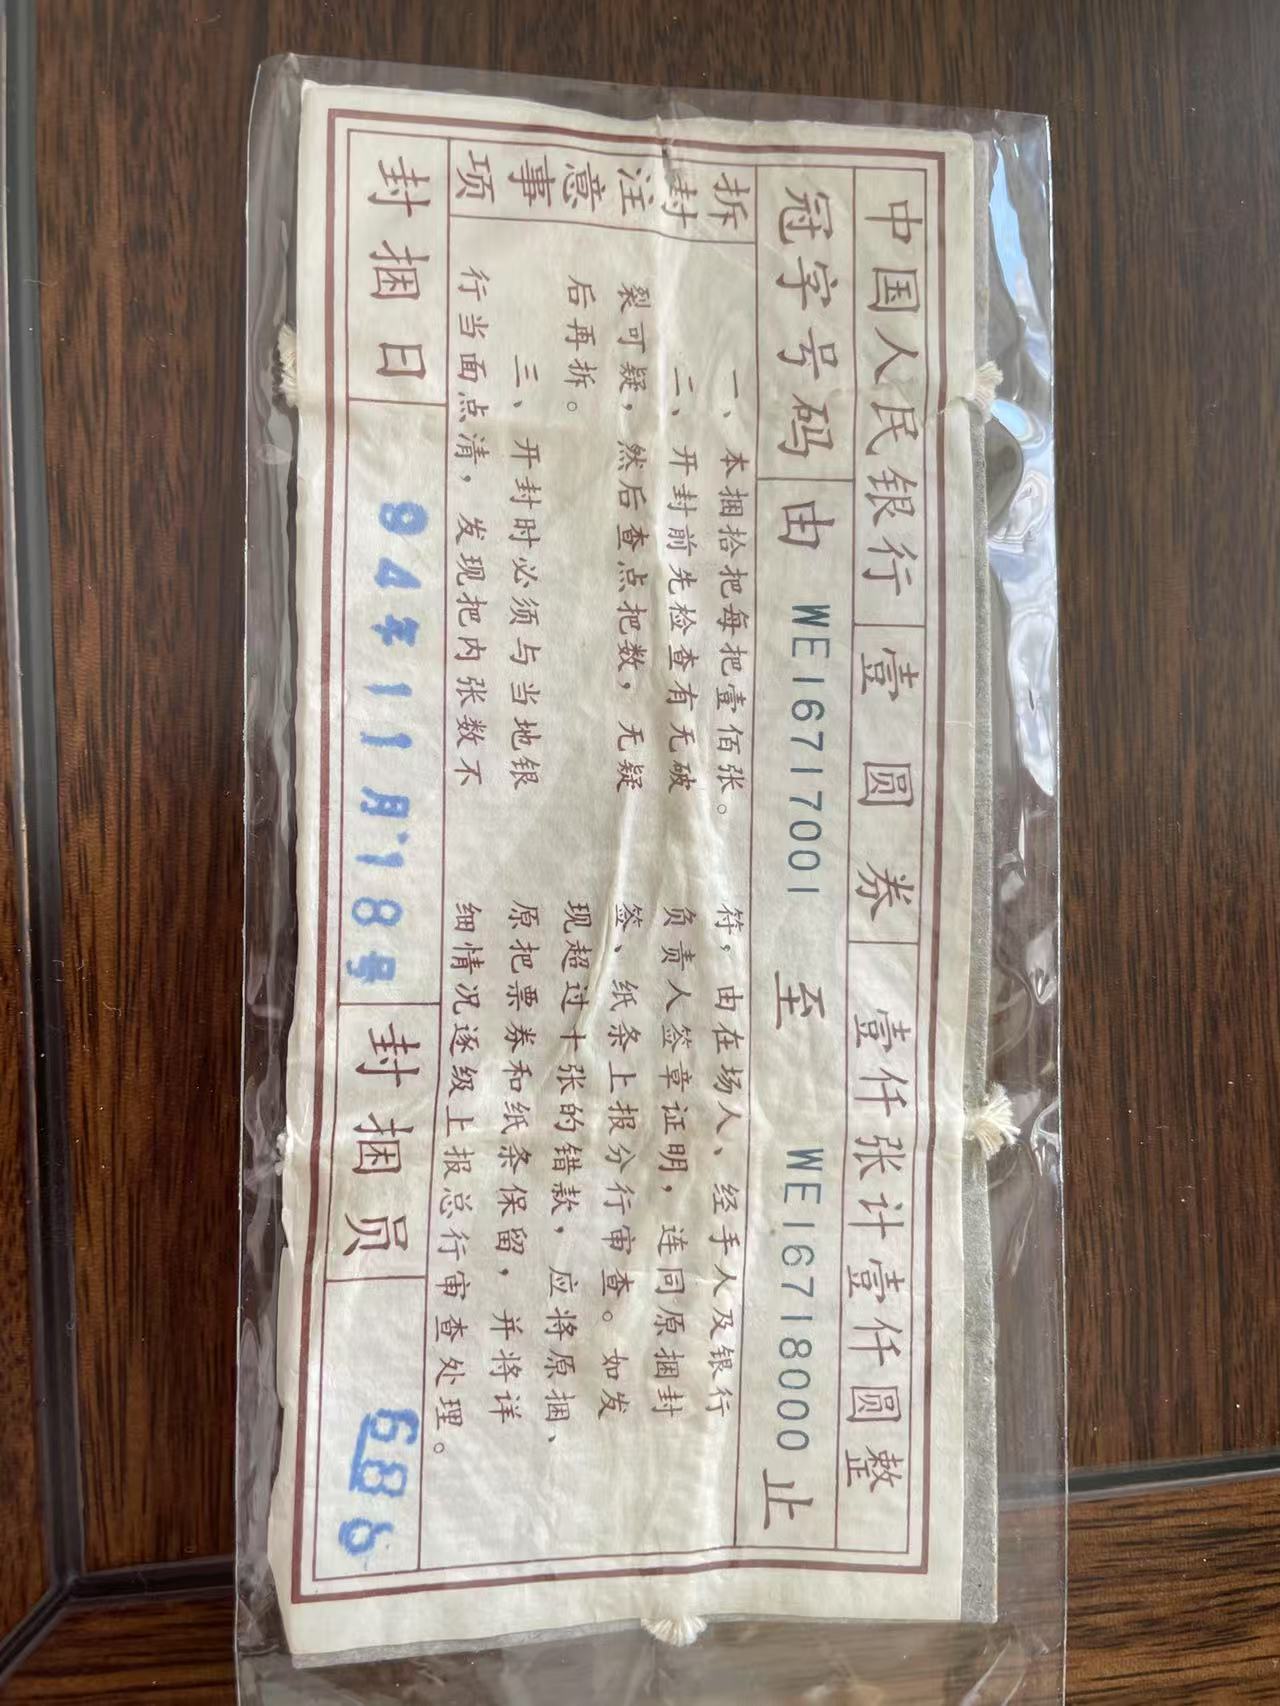 中国人民银行 壹圆券 壹仟张计壹仟圆整
冠字号码 由 WE16717001 至 WE16718000 止
拆封注意事项
一、本捆拾把每把壹佰张。
二、开封前先检查有无破
裂可疑，然后查点把数，无疑
后再拆。
三、开封时必须与当地银
行当面点清，发现把内张数不
符，由在场人、经手人及银行
负责人签章证明，连同原捆封
签、纸条上报分行审查。如发
现超过十张的错款，应将原捆、
原把票券和纸条保留，并将详
细情况逐级上报总行审查处理。
封捆日 94年11月18号 封捆员 686